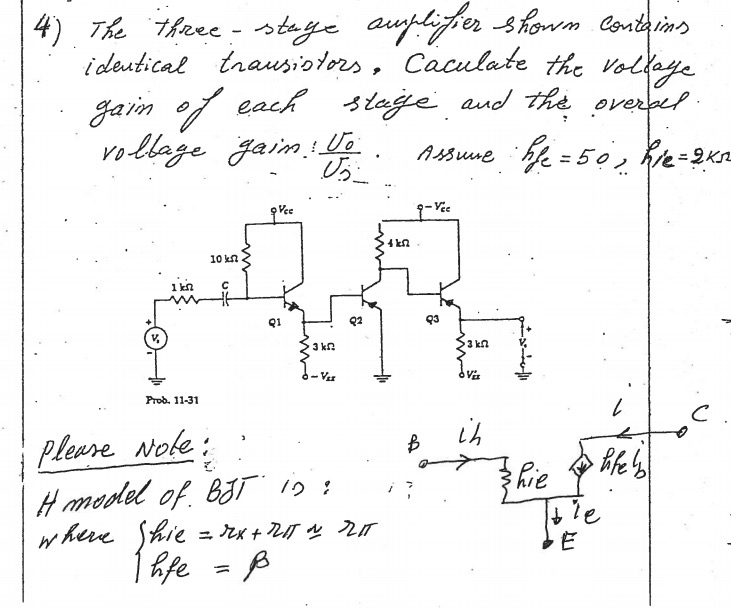 4) The three-stage amplifier shown contains
identical transistors. Caculate the voltage
gain of each stage and the overall
voltage gain: Vo/Vs. Assume hfe = 50, hie = 2KΩ
Vcc
-V'cc
10 kΩ
4 kΩ
1 kΩ
C
Q1
Q2
Q3
+
Vs
-
3 kΩ
3 kΩ
+
Vo
-
-VEE
V'EE
Prob. 11-31
Please Note:
H model of BJT is:
where { hie = rx + rπ ≃ rπ
hfe = β
B
ib
hie
i
C
hfe ib
ie
E